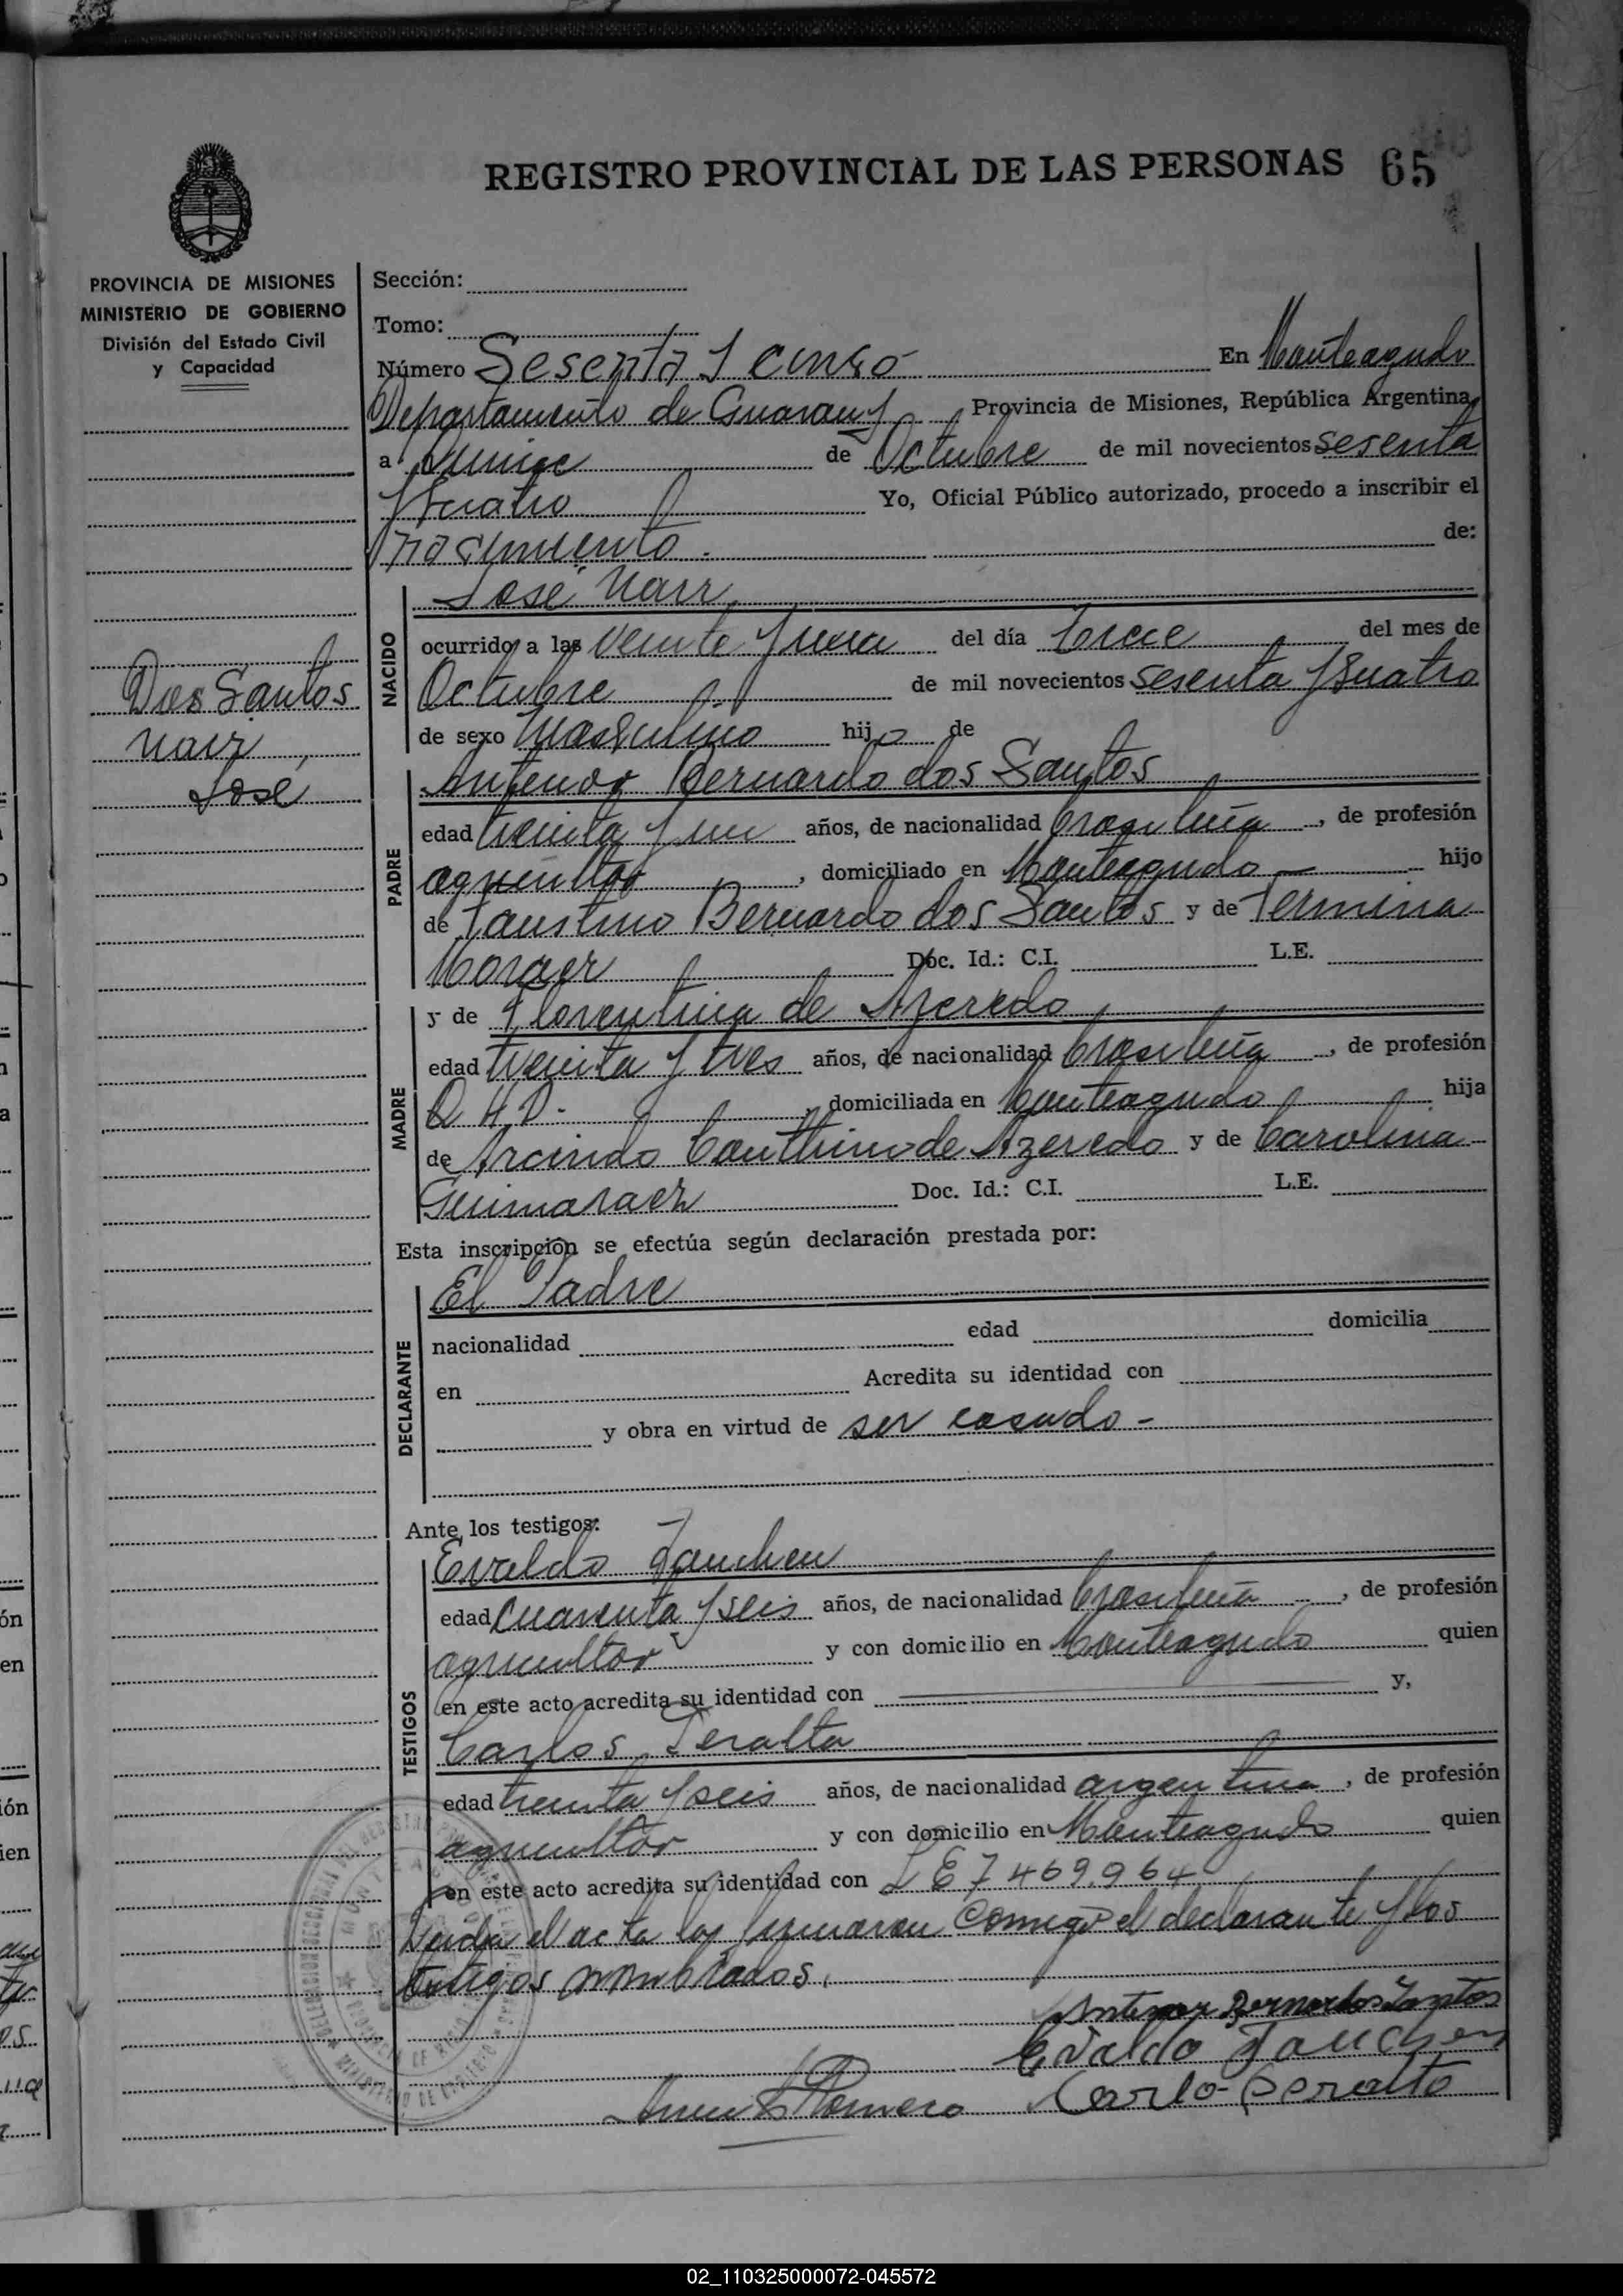 REGISTRO PROVINCIAL DE LAS PERSONAS 65
PROVINCIA DE MISIONES
MINISTERIO DE GOBIERNO
División del Estado Civil
y Capacidad
Dos Santos
Nair,
José
Sección:
Tomo:
Número Sesenta y cinco En Monteagudo
Departamento de Guaraný Provincia de Misiones, República Argentina,
a Quince de Octubre de mil novecientos sesenta
y cuatro Yo, Oficial Público autorizado, procedo a inscribir el
nacimiento. de:
NACIDO
José Nair
ocurrido a las veinte y una del día trece del mes de
Octubre de mil novecientos sesenta y cuatro
de sexo masculino hijo de
PADRE
Antenor Bernardo dos Santos
edad treinta y un años, de nacionalidad brasileña, de profesión
agricultor, domiciliado en Monteagudo hijo
de Faustino Bernardo dos Santos y de Termina
Moraez Doc. Id.: C.I. L.E.
MADRE
y de Florentina de Azeredo
edad treinta y tres años, de nacionalidad brasileña, de profesión
Q.H.D. domiciliada en Monteagudo hija
de Arcindo Couthino de Azeredo y de Carolina
Guimaraez Doc. Id.: C.I. L.E.
Esta inscripción se efectúa según declaración prestada por:
DECLARANTE
El Padre
nacionalidad edad domicilia
en Acredita su identidad con
y obra en virtud de ser casado -
Ante los testigos:
TESTIGOS
Evaldo Jauchen
edad cuarenta y seis años, de nacionalidad brasileña, de profesión
agricultor y con domicilio en Monteagudo quien
en este acto acredita su identidad con y,
Carlos Peralta
edad treinta y seis años, de nacionalidad argentina, de profesión
agricultor y con domicilio en Monteagudo quien
en este acto acredita su identidad con L E 7469.964
Leída el acta la firmaron conmigo el declarante y los
testigos nombrados.
Antenor Bernardo Santos
Evaldo Jauchen
Romero Carlo Peralta
02_110325000072-045572